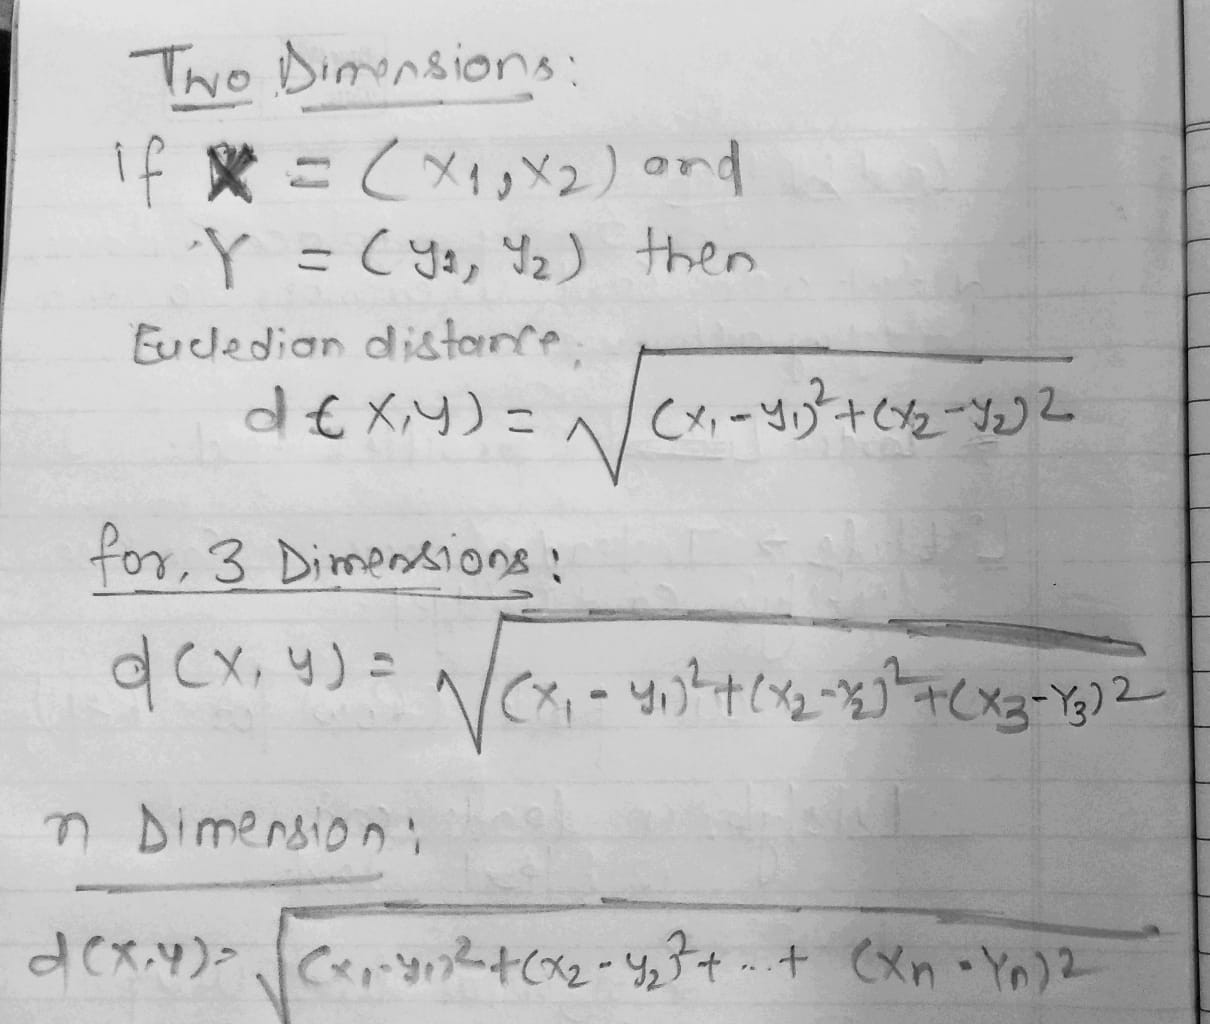 Two Dimensions:
if X = (x₁, x₂) and
Y = (y₁, y₂) then
Eucledian distance,
d(x,y) = √(x₁-y₁)²+(x₂-y₂)2
for, 3 Dimensions:
d(x, y) = √(x₁-y₁)²+(x₂-y₂)²+(x3-y₃)2
n Dimension:
d(x,y)= √(x₁-y₁)²+(x₂-y₂)²+...+ (xn-yn)2